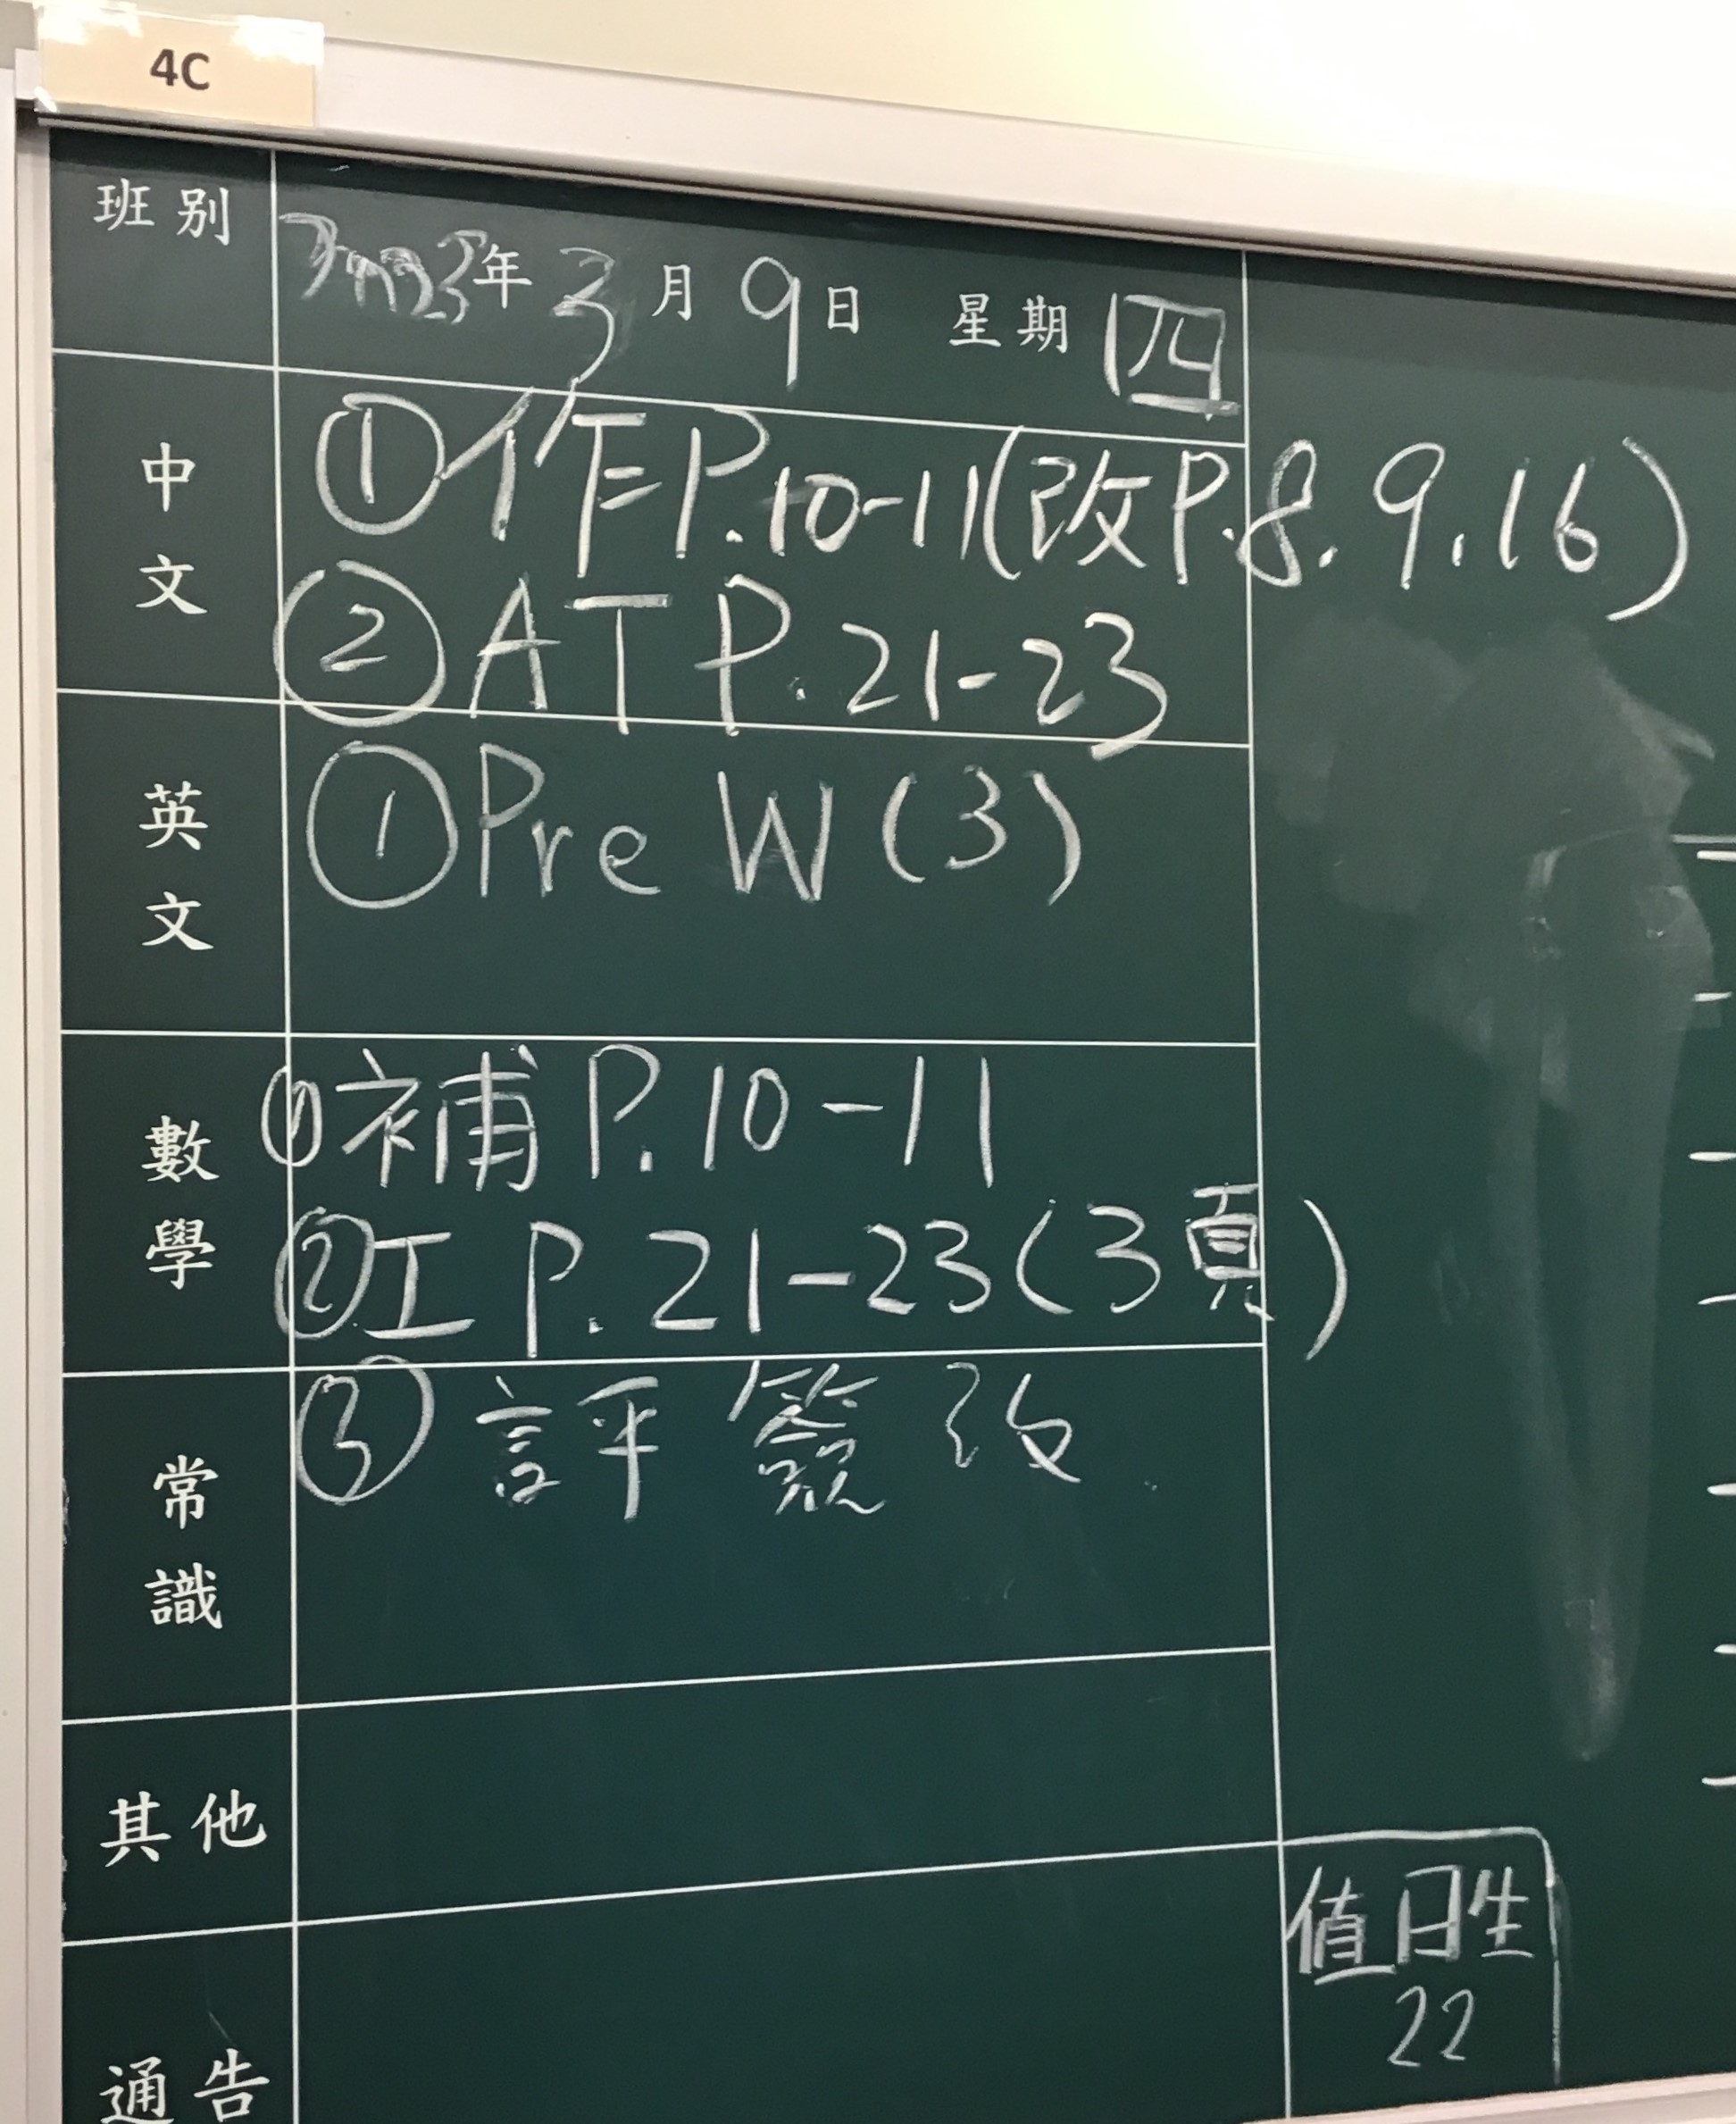 4C
班別 2023年3月9日 星期四
中文
①作P.10-11(改P.8.9.16)
②ATP.21-23
英文
①Pre W(3)
數學
①補P.10-11
②工P.21-23(3頁)
常識
③評 簽 改
其他
通告
值日生
22